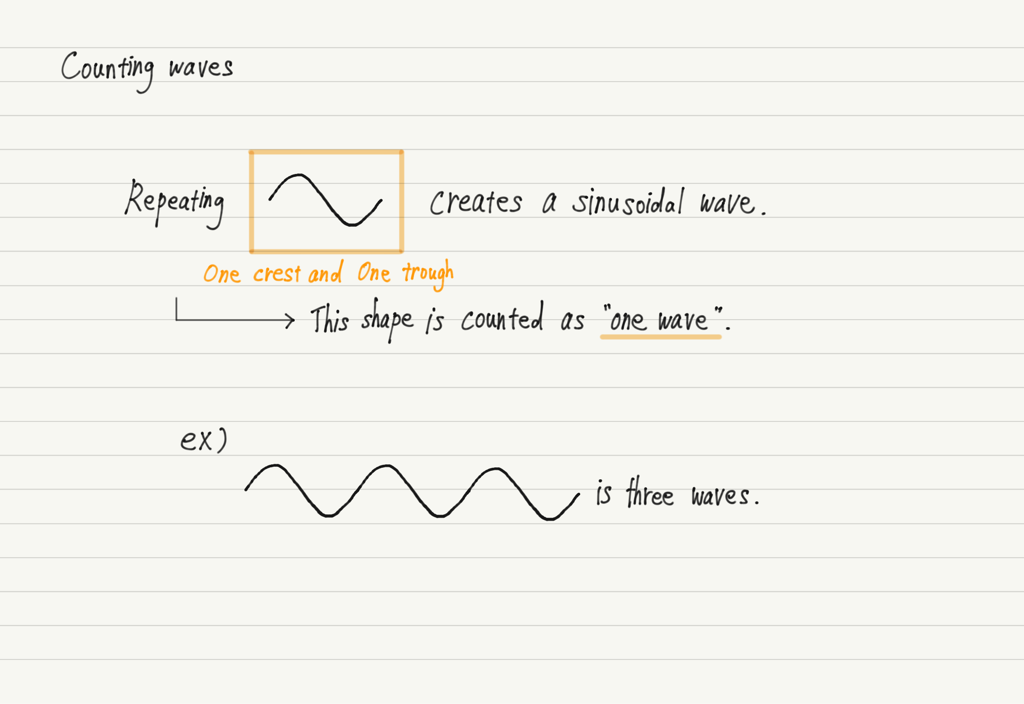 Counting waves
Repeating creates a sinusoidal wave.
One crest and One trough
This shape is counted as "one wave".
ex)
is three waves.